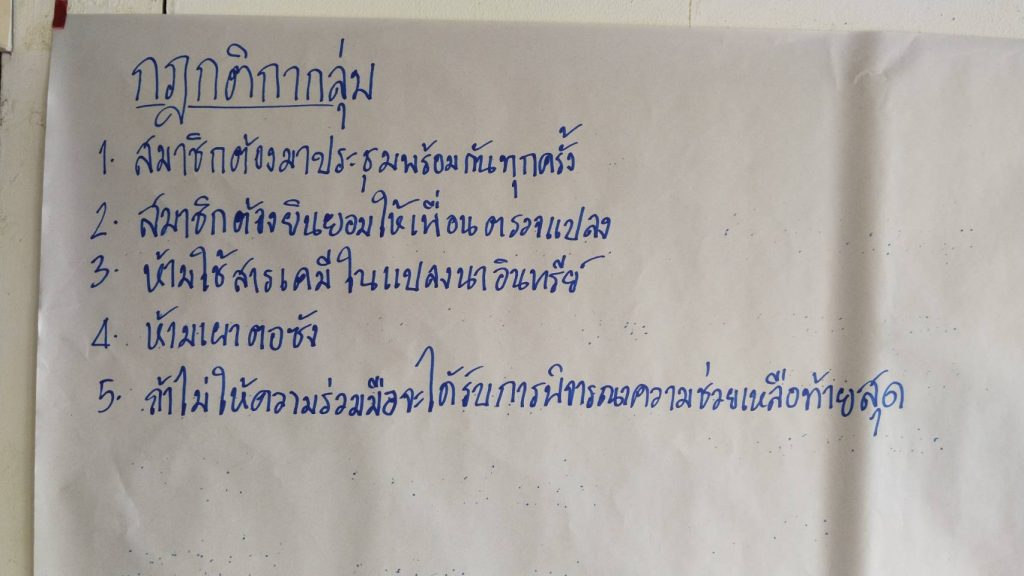 กฎกติกากลุ่ม
1. สมาชิกต้องมาประชุมพร้อมกันทุกครั้ง
2. สมาชิกต้องยินยอมให้เพื่อนตรวจแปลง
3. ห้ามใช้สารเคมีในแปลงนาอินทรีย์
4. ห้ามเผาตอซัง
5. ถ้าไม่ให้ความร่วมมือจะได้รับการพิจารณาความช่วยเหลือท้ายสุด